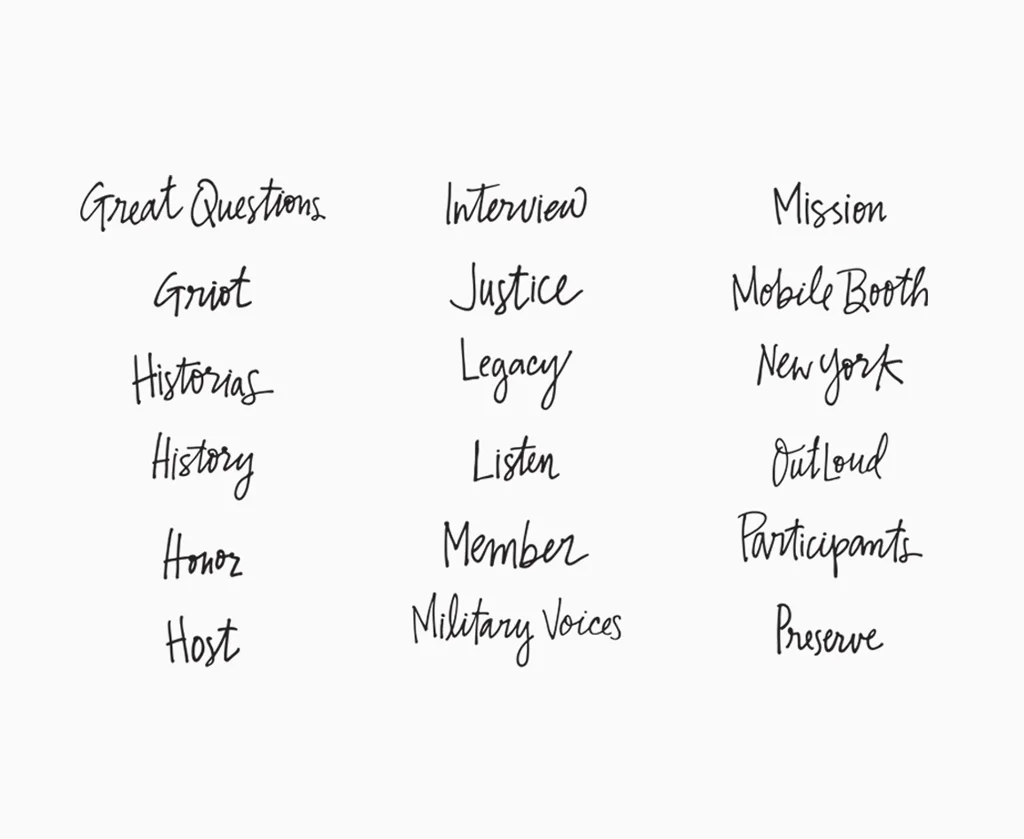 Great Questions
Griot
Historias
History
Honor
Host
Interview
Justice
Legacy
Listen
Member
Military Voices
Mission
Mobile Booth
New York
OutLoud
Participants
Preserve